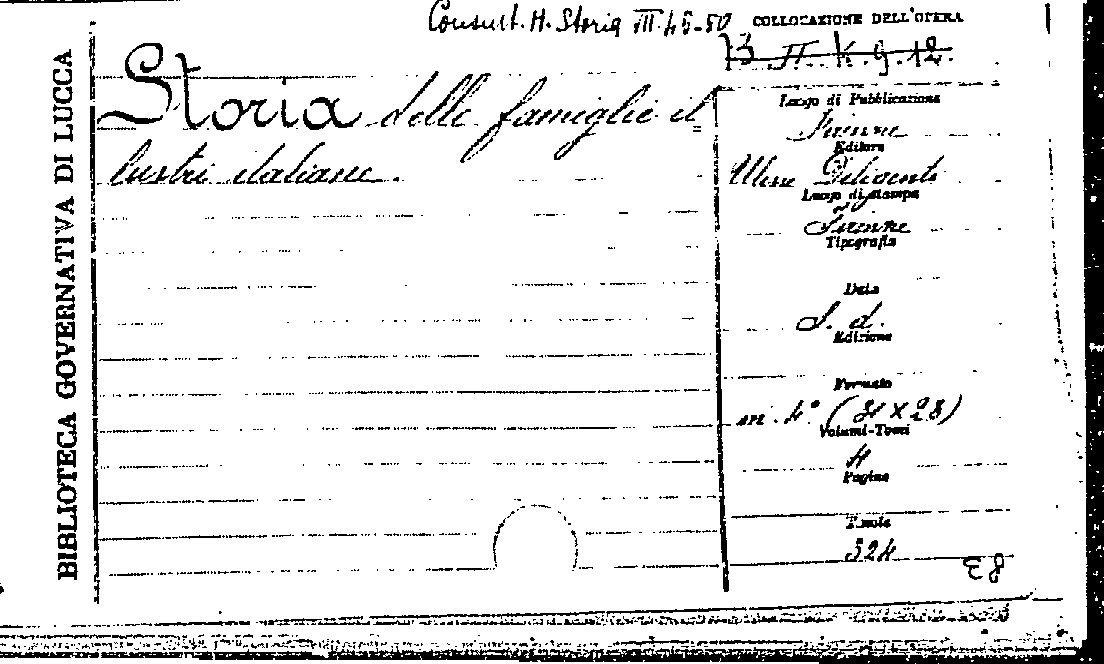 BIBLIOTECA GOVERNATIVA DI LUCCA
Consult. H. Storia III. 45-50
COLLOCAZIONE DELL'OPERA
B II. K. 9. 12.
Storia delle famiglie il
lustri italiane.
Luogo di Pubblicazione
Firenze
Editore
Ulisse Diligenti
Luogo di stampa
Firenze
Tipografia
Data
S. d.
Edizione
Formato
in 4° ( × 28)
Volumi-Tomi
4
Pagine
Tavole
324